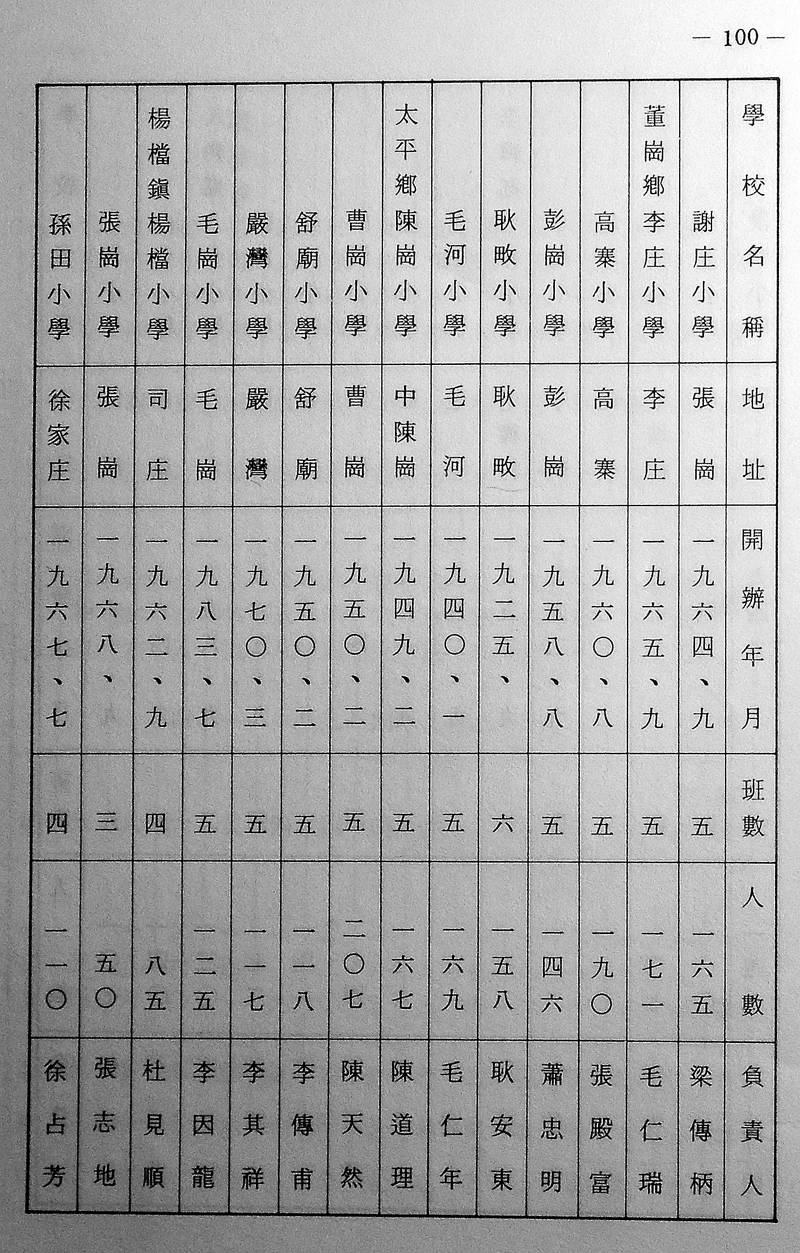 — 100 —
學校名稱 地址 開辦年月 班數 人數 負責人
謝庄小學 張崗 一九六四、九 五 一六五 梁傳柄
董崗鄉李庄小學 李庄 一九六五、九 五 一七一 毛仁瑞
高寨小學 高寨 一九六〇、八 五 一九〇 張殿富
彭崗小學 彭崗 一九五八、八 五 一四六 蕭忠明
耿畈小學 耿畈 一九二五、 六 一五八 耿安東
毛河小學 毛河 一九四〇、一 五 一六九 毛仁年
太平鄉陳崗小學 中陳崗 一九四九、二 五 一六七 陳道理
曹崗小學 曹崗 一九五〇、二 五 二〇七 陳天然
舒廟小學 舒廟 一九五〇、二 五 一一八 李傳甫
嚴灣小學 嚴灣 一九七〇、三 五 一一七 李其祥
毛崗小學 毛崗 一九八三、七 五 一二五 李因龍
楊檔鎮楊檔小學 司庄 一九六二、九 四 八五 杜見順
張崗小學 張崗 一九六八、 三 五〇 張志地
孫田小學 徐家庄 一九六七、七 四 一一〇 徐占芳